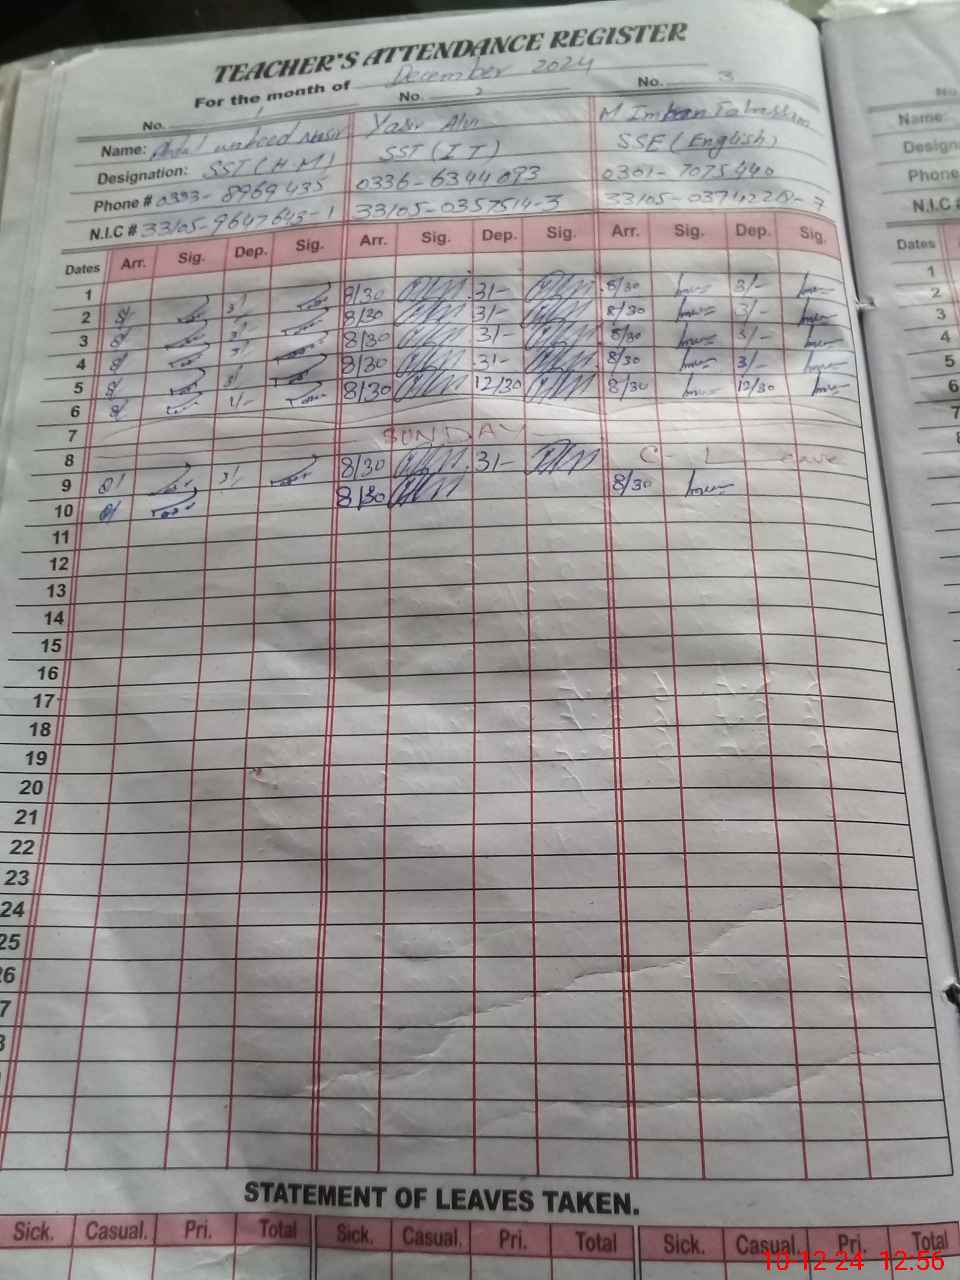 TEACHER'S ATTENDANCE REGISTER
For the month of December 2024
No. 1 No. 2 No. 3
Name: Yasir M Imran Tabassum
Designation: SST (H.M) SST (IT) SSE (English)
Phone # 0333-8969435 0336-6344093 0301-7075440
N.I.C # 33105-9647643-1 33105-0357514-3 33105-
Dates Arr. Sig. Dep. Sig. Arr. Sig. Dep. Sig. Arr. Sig. Dep. Sig.
1
2 8/ 3/ 8/30 3/- 8/30 3/-
3 8/ 3/ 8/30 3/- 8/30 3/-
4 8/ 3/ 8/30 3/- 8/30 3/-
5 8/ 3/ 8/30 3/- 8/30 3/-
6 8/ 1/- 8/30 12/30 8/30 12/30
7
8 SUNDAY
9 8/ 3/ 8/30 3/- C-Leave
10 8/ 8/30 8/30
11
12
13
14
15
16
17
18
19
20
21
22
23
24
25
26
7
STATEMENT OF LEAVES TAKEN.
Sick. Casual. Pri. Total Sick. Casual. Pri. Total Sick. Casual. Pri. Total
No.
Name:
Design
Phone
N.I.C
Dates
1
2
3
4
5
6
7
10-12-24 12:56